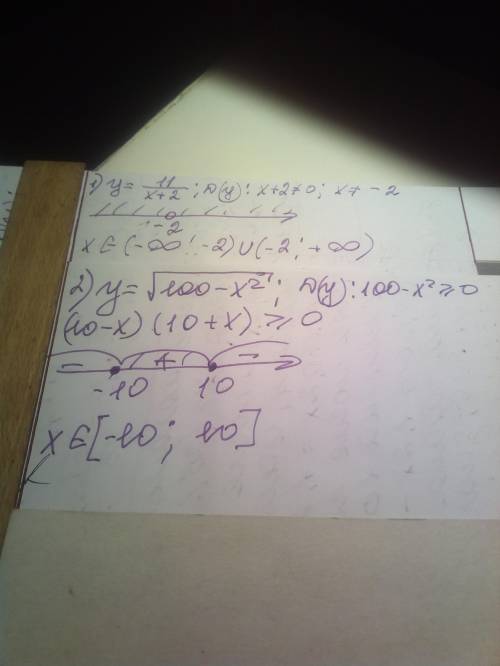 1) y = 11/(x+2); D(y): x+2≠0; x≠ -2
-2
x∈(-∞; -2)∪(-2; +∞)
2) y = √(100-x²); D(y): 100-x² ≥ 0
(10-x)(10+x) ≥ 0
- + -
-10 10
x∈[-10; 10]